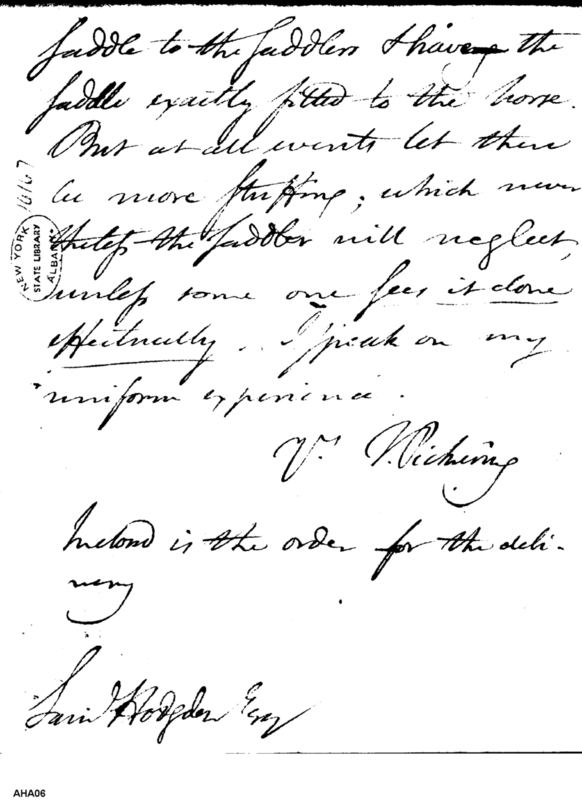 saddle to the saddlers & have the
saddle exactly fitted to the horse.
But at all events let there
be more stuffing; which never
theless the saddler will neglect,
unless some one sees it done
effectually. I speak on my
uniform experience.
Yrs T. Pickering
Inclosd is the order for the deli-
very
Saml Hodgdon Esq
16167
NEW YORK
STATE LIBRARY
ALBANY
AHA06